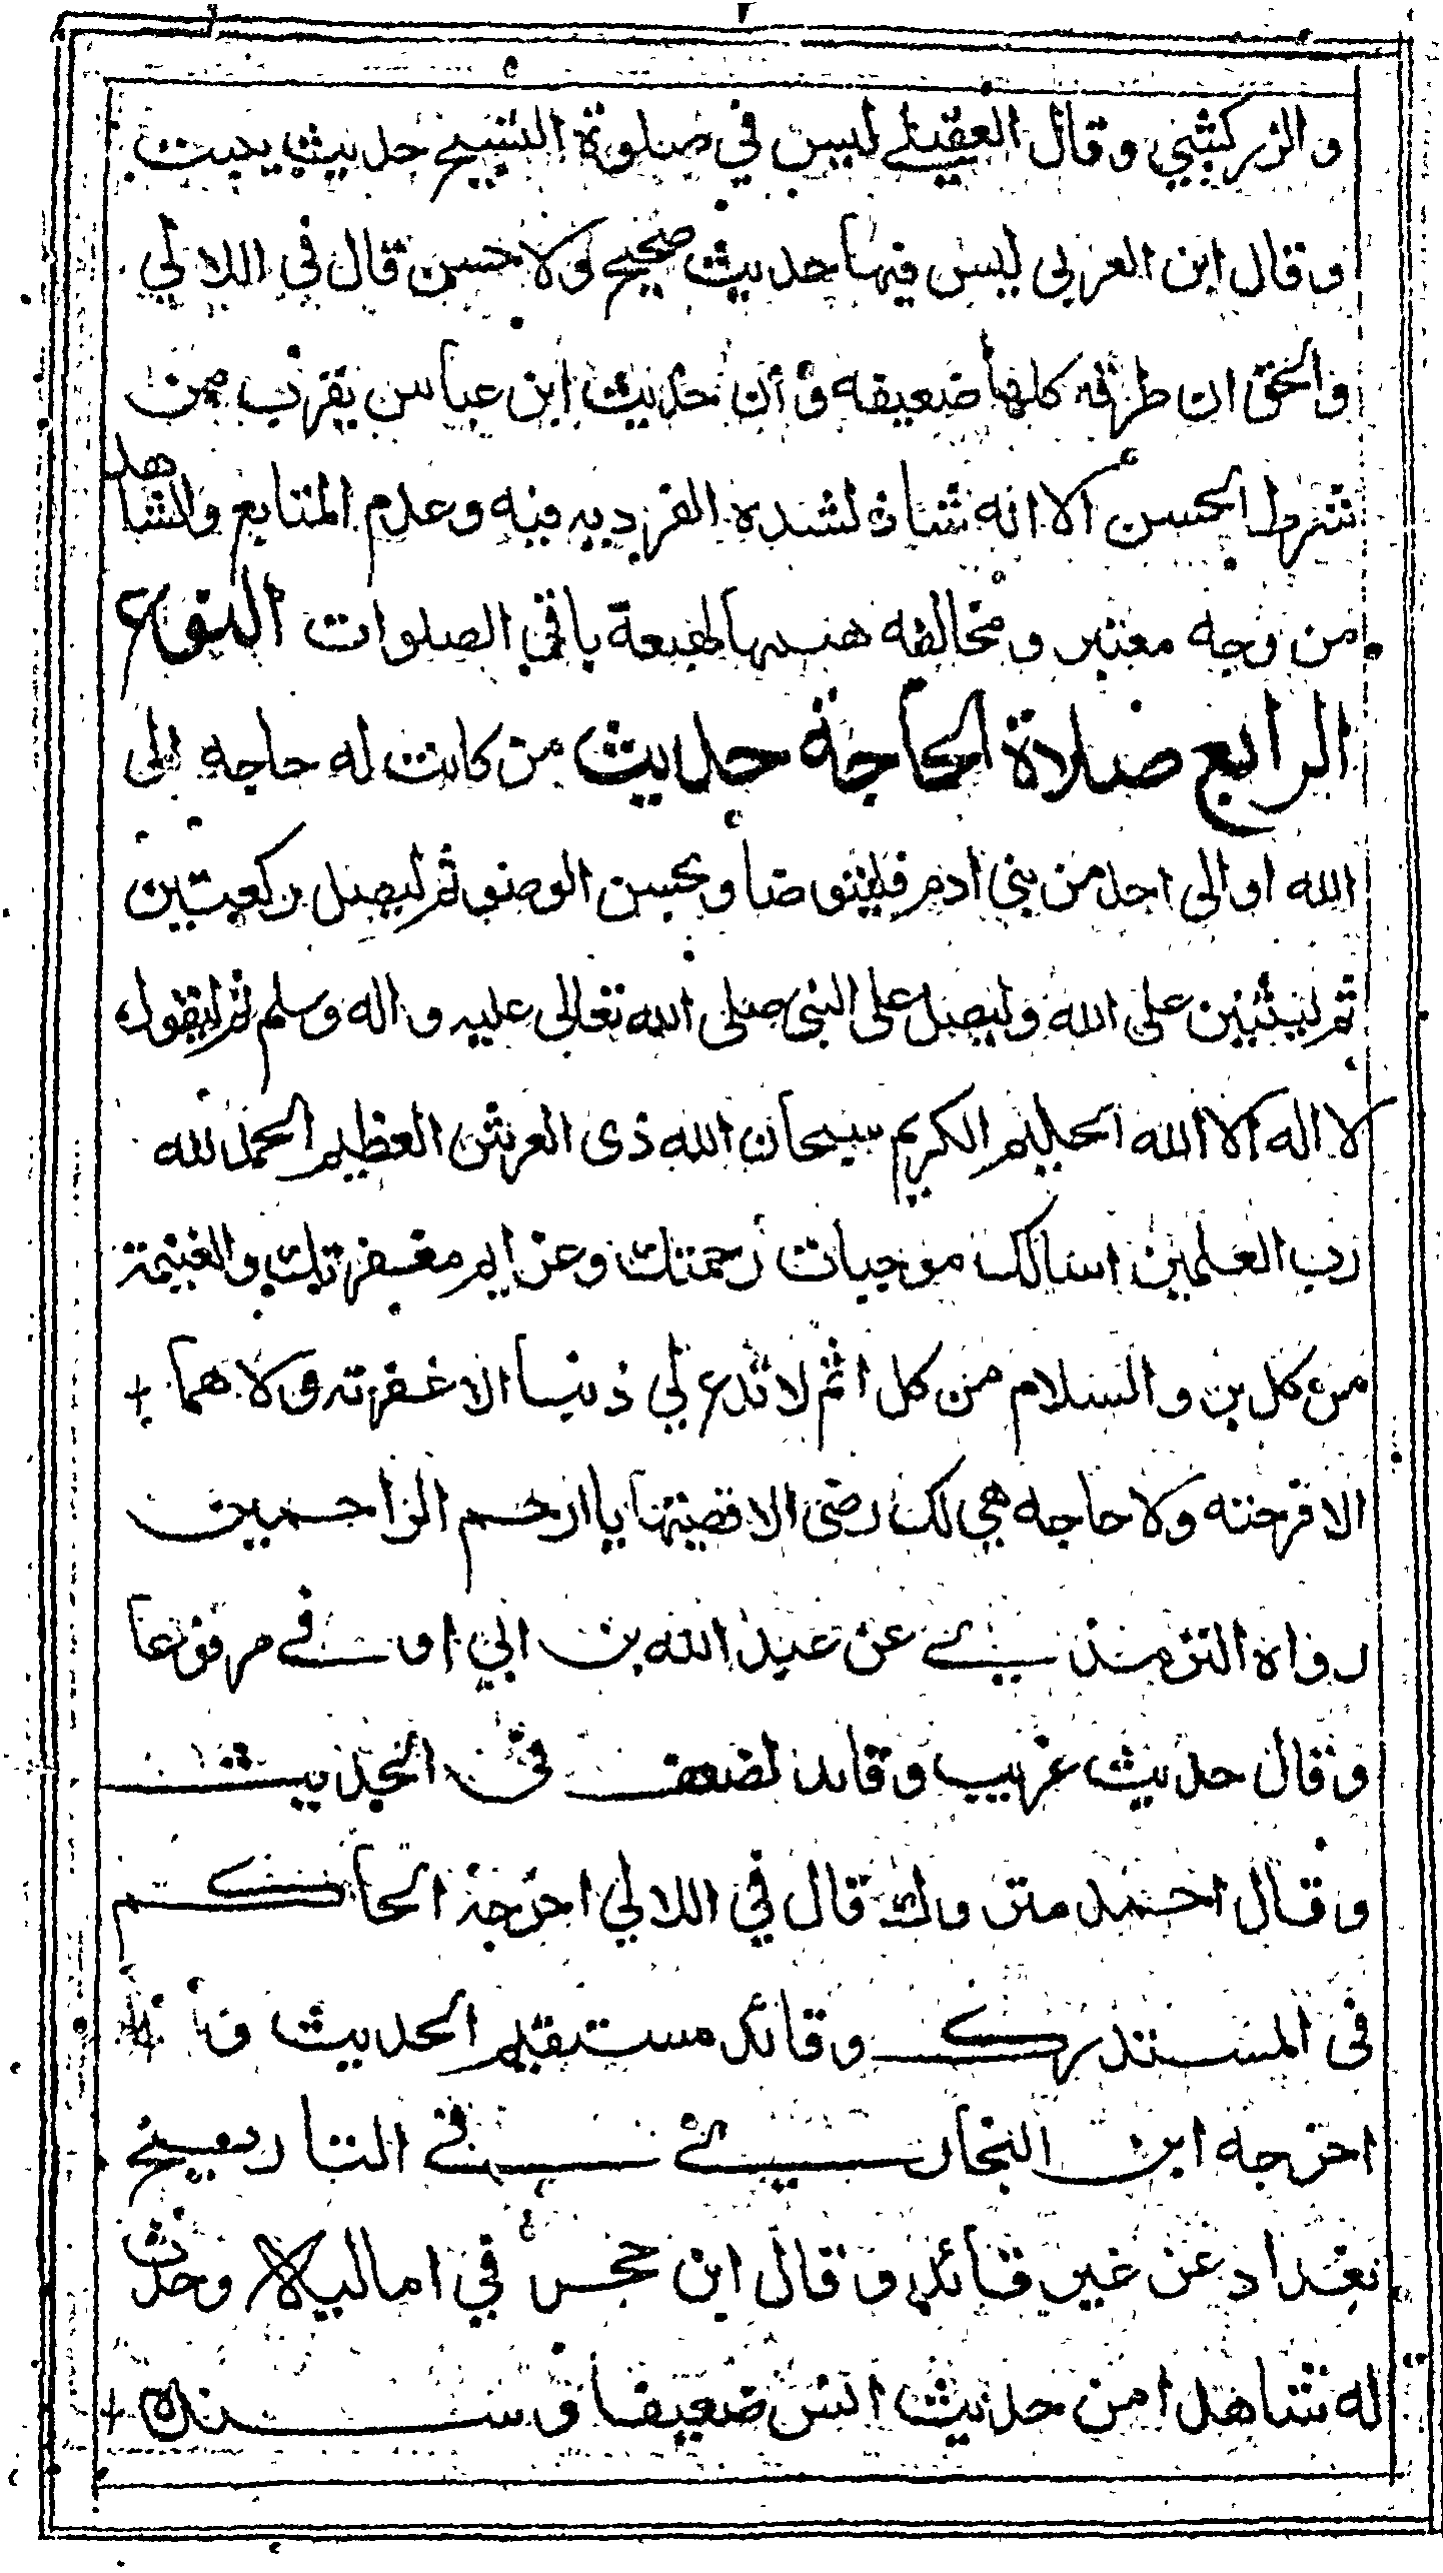 والزركشي وقال العقيلے ليس في صلوة التسبيح حديث يثبت
وقال ابن العربي ليس فيها حديث صحيح ولا حسن قال في اللالي
والحق ان طرقه كلها ضعيفه وأن حديث ابن عباس يقرب من
شرط الحسن الا انه شاذ لشده الفرديه فيه وعدم المتابع والشاهد
من وجه معتبر ومخالفه هيئتها لهيئة باقي الصلوات النوع
الرابع صلاة الحاجة حديث من كانت له حاجه الى
الله او الى احد من بني ادم فليتوضأ ويحسن الوضو ثم ليصل ركعتين
ثم ليثنين على الله وليصل على النبي صلى الله تعالى عليه واله وسلم ثم ليقول
لا اله الا الله الحليم الكريم سبحان الله ذى العرش العظيم الحمد لله
رب العلمين اسالك موجبات رحمتك وعزايم مغفرتك والغنيمة
من كل بر والسلام من كل اثم لا تدع لي ذنبا الا غفرته ولا هما
الا فرجته ولا حاجه هي لك رضى الا قضيتها يا ارحم الراحمين
رواه الترمذي عن عبد الله بن ابي اوفے مرفوعا
وقال حديث غريب وقايد لضعف في الحديث
وقال احمد متروك قال في اللالي اخرجه الحاكم
فى المستدرك وقائد مستقيم الحديث و
اخرجه ابن النجار في التاريخ
بغداد عن غير قائد وقال ابن حجر في اماليه وحدث
له شاهدا من حديث انس ضعيفا وسنده